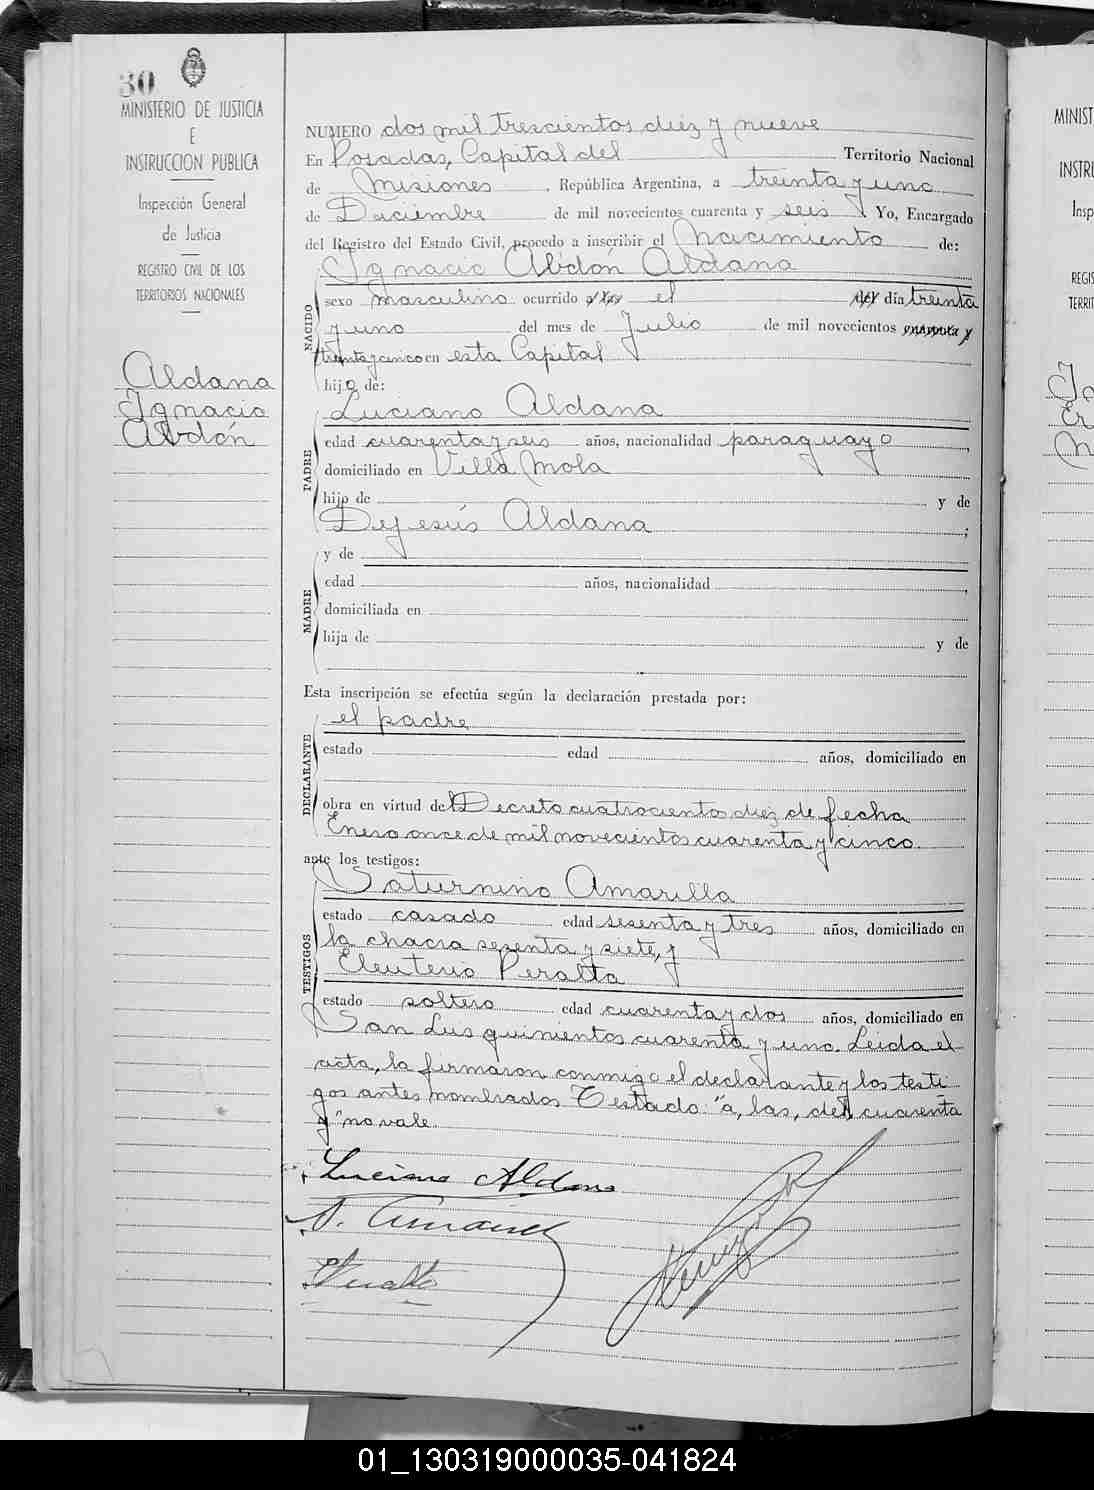 30
MINISTERIO DE JUSTICIA
E
INSTRUCCION PUBLICA
Inspección General
de Justicia
REGISTRO CIVIL DE LOS
TERRITORIOS NACIONALES
Aldana
Ignacio
Abdón
NUMERO dos mil trescientos diez y nueve
En Posadas, Capital del Territorio Nacional
de Misiones, República Argentina, a treinta y uno
de Diciembre de mil novecientos cuarenta y seis. Yo, Encargado
del Registro del Estado Civil, procedo a inscribir el Nacimiento de:
Ignacio Abdón Aldana
NACIDO
sexo masculino ocurrido a las el del día treinta
y uno del mes de Julio de mil novecientos cuarenta y
treinta y cinco en esta Capital
hijo de:
Luciano Aldana
PADRE
edad cuarenta y seis años, nacionalidad paraguayo,
domiciliado en Villa Mola
hijo de y de
Dejesús Aldana;
y de
MADRE
edad años, nacionalidad,
domiciliada en
hija de y de
Esta inscripción se efectúa según la declaración prestada por:
el padre
DECLARANTE
estado edad años, domiciliado en
obra en virtud del Decreto cuatrocientos diez de fecha
Enero once de mil novecientos cuarenta y cinco.
ante los testigos:
Saturnino Amarilla
TESTIGOS
estado casado edad sesenta y tres años, domiciliado en
la chacra sesenta y siete, y
Eleuterio Peralta
estado soltero edad cuarenta y dos años, domiciliado en
San Luis quinientos cuarenta y uno. Leida el
acta, la firmaron conmigo el declarante y los testi
gos antes nombrados Testado: "a, las, del cuarenta
y" no vale.
Luciano Aldana
Peralta
MINIST
INSTRU
Insp
REGIS
TERRIT
01_130319000035-041824